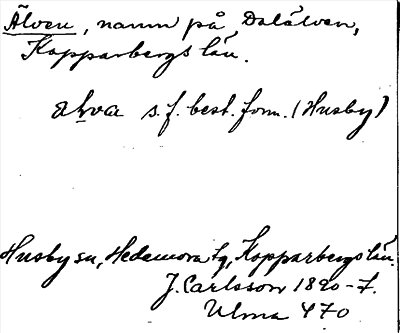 Älven, namn på Dalälven,
Kopparbergs län.
s. f. best. form. (Husby)
Husby sn, Hedemora tg, Kopparbergs län.
J. Carlsson 1890-t.
Ulma 470